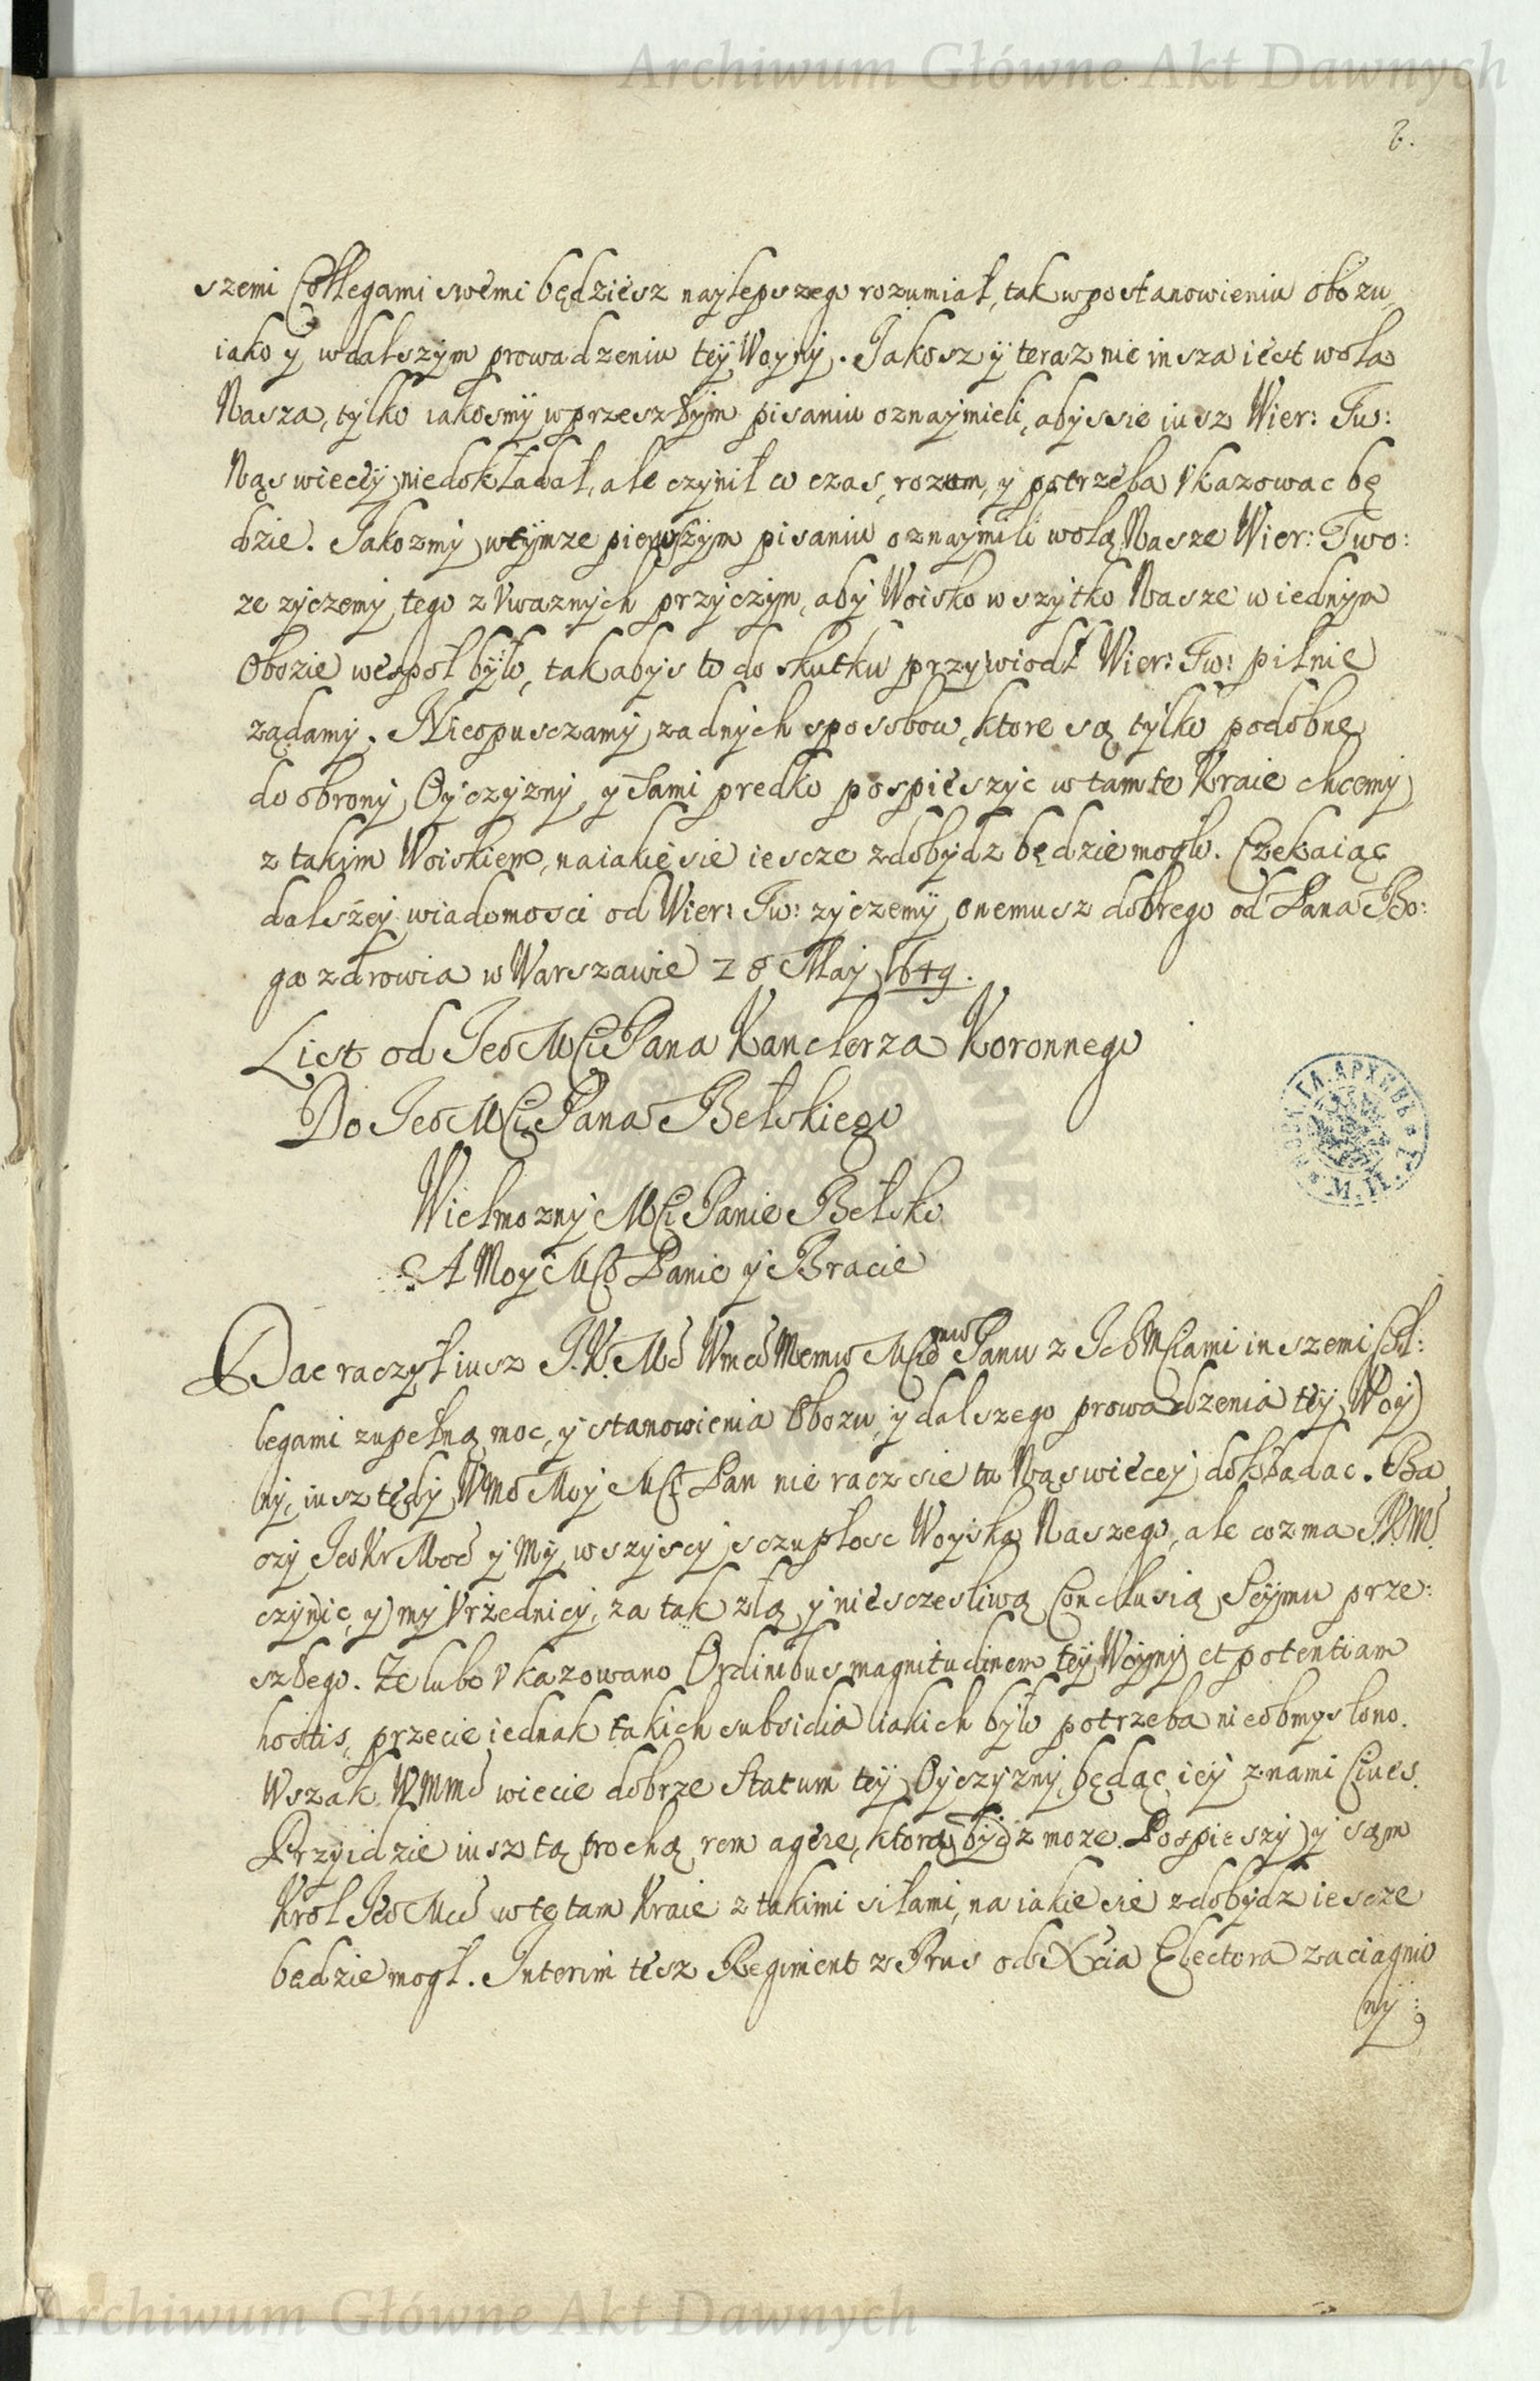 Archiwum Główne Akt Dawnych
2.
szemi Collegami swemi będziesz naylepszego rozumiał, tak w postanowieniu obozu,
iako y w dalszym prowadzeniu tey Woyny. Jakosz y teraz nie insza iest wola
Nasza, tylko iakosmy w przeszłym pisaniu oznaymieli, abys sie iusz Wier: Tw:
Nas wiecey nie dokładał, ale czynił co czas, rozum, y potrzeba vkazowac bę
dzie. Jakozmy w tymze pierwszym pisaniu oznaymili wolą Nasze Wier: Two:
ze zyczemy tego z vwaznych przyczyn, aby Woisko wszytko Nasze w iednym
Obozie wespoł było, tak abys to do skutku przywiodł Wier: Tw: pilnie
ządamy. Nieopusczamy zadnych sposobow, ktore są tylko podobne
do obrony Oyczyzny, y sami predko pospieszyc w tamte Kraie chcemy,
z takim Woiskiem, na iakie sie iescze zdobydz będzie mogło. Czekaiąc
dalszey wiadomosci od Wier: Tw: zyczemy onemusz dobrego od Pana Bo:
ga zdrowia w Warszawie 28 Maÿ 1649.
List od Jeo Mci Pana Kanclerza Koronnego
Do Jeo Mci Pana Bełskiego
Wielmozny Mci Panie Bełski
A Moy Mci Panie y Bracie
Dac raczył iusz J. K. Mć Wmći Memu Mciwemu Panu z Ich Mciami inszemi Col:
legami zupełną moc, y stanowienia Obozu, y dalszego prowadzenia tey Woy
ny, iusz tedy WMć Moy Mci Pan nie racz sie tu Nas wiecey dokładac. Ba
czy Jeo Kr Mość y My wszyscy sczupłosc Woyska Naszego, ale coz ma J.K.Mć
czynic, y my Vrzednicy, za tak złą y niesczesliwą Conclusią Seymu prze:
szłego. Ze lubo vkazowano Ordinibus magnitudinem tey Woyny et potentiam
hostis, przecie iednak takich subsidia iakich było potrzeba nieobmyslono.
Wszak WMMć wiecie dobrze Statum tey Oyczyzny będąc iey z nami Ciues.
Przyidzie iusz tą trochą rem agere, ktora bydz moze. Pospieszy y sam
Krol Jeo Mć w te tam Kraie z takimi siłami, na iakie sie zdobydz iescze
będzie mogł. Interim tesz Regiment z Prus od Xcia Electora zaciągnio
ny:
МОСК. ГЛ. АРХИВЪ М. И. Д.
Archiwum Główne Akt Dawnych